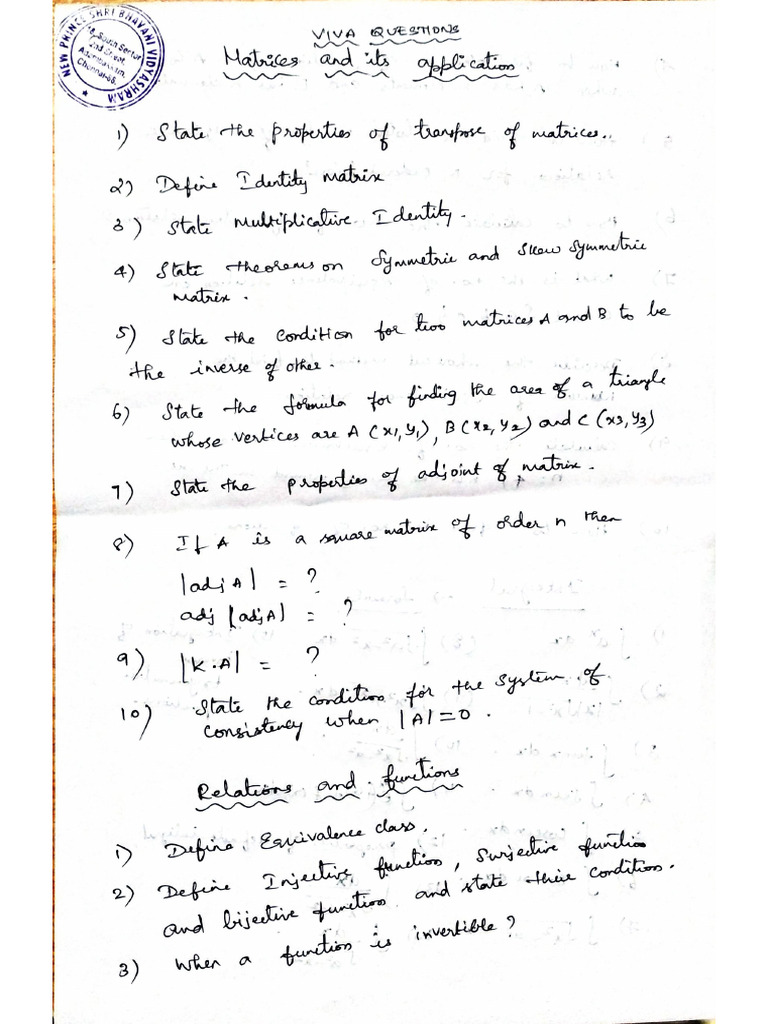 NEW PRINCE SHRI BHAVANI VIDYASHRAM
2nd Street,
Chennai-88.
VIVA QUESTIONS
Matrices and its application.
1) State the properties of transpose of matrices.
2) Define Identity matrix
3) State Multiplicative Identity.
4) State theorems on Symmetric and Skew Symmetric
matrix.
5) State the condition for two matrices A and B to be
the inverse of other.
6) State the formula for finding the area of a triangle
whose vertices are A (x1,y1), B(x2,y2) and C (x3,y3)
7) State the properties of adjoint of matrix.
8) If A is a square matrix of order n then
|adj A| = ?
adj |adj A| = ?
9) |K.A| = ?
10) State the condition for the system of
consistency when |A|=0.
Relations and functions
1) Define Equivalence class.
2) Define Injective function, Surjective function
and bijective function and state their condition.
3) When a function is invertible?